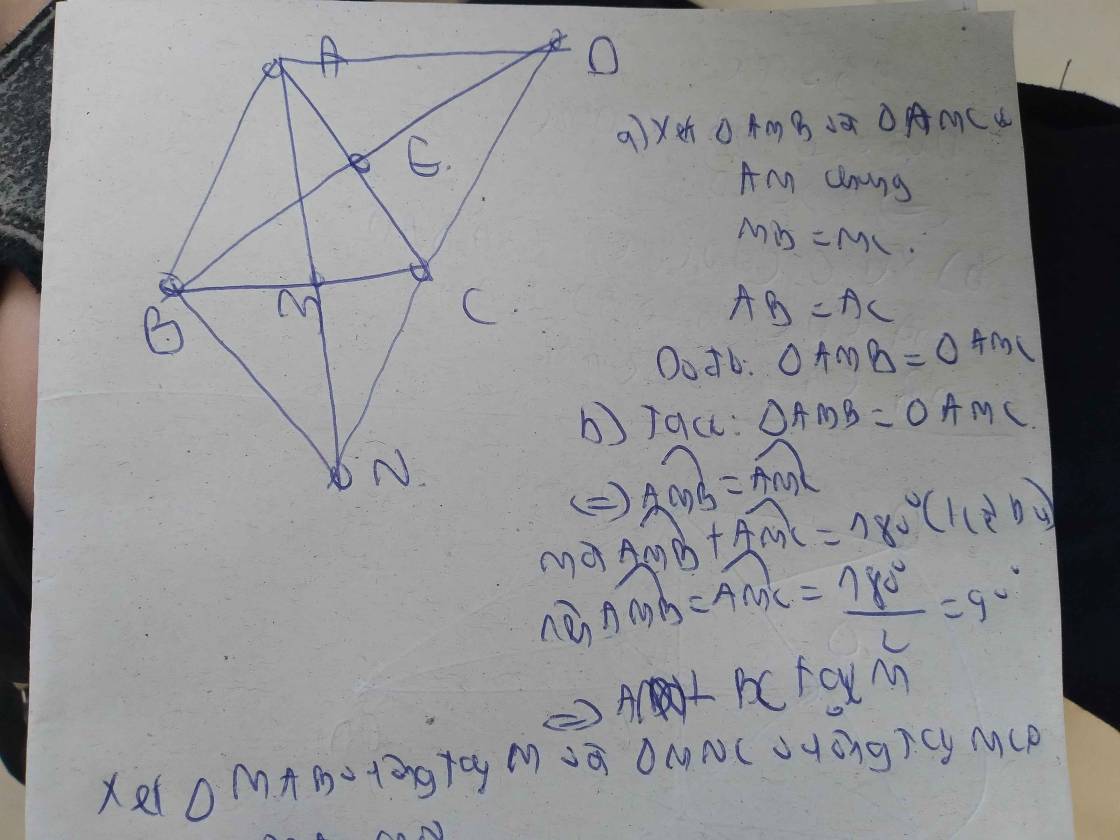 A
D
E.
B
M
C.
N.
a) Xét Δ AMB và Δ AMC có
AM chung
MB = MC.
AB = AC
Do đó: Δ AMB = Δ AMC
b) Ta có: Δ AMB = Δ AMC.
=> AMB = AMC
mà AMB + AMC = 180° (kề bù)
nên AMB = AMC = 180° / 2 = 90°
=> AM ⊥ BC tại M
Xét Δ MAB vuông tại M và Δ MNC vuông tại M có